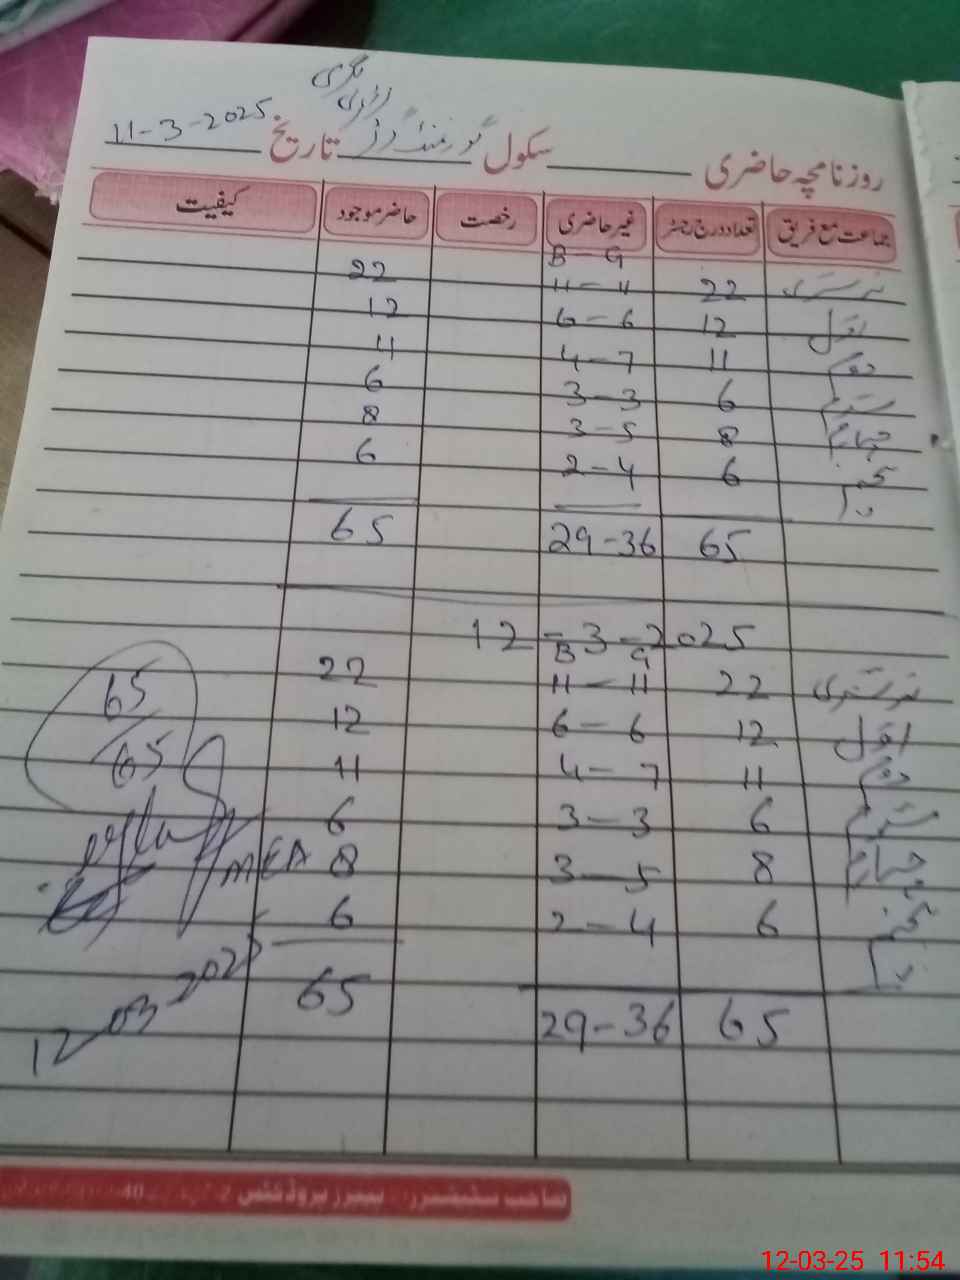 روزنامچہ حاضری سکول گورنمنٹ تاریخ 11-3-2025
جماعت مع فریق تعداد درج رجسٹر غیر حاضری رخصت حاضر موجود کیفیت
B - G
نرسری 22 11 - 11 22
اول 12 6 - 6 12
دوئم 11 4 - 7 11
سوئم 6 3 - 3 6
چہارم 8 3 - 5 8
پنجم 6 2 - 4 6
65 29 - 36 65
12 - 3 - 2025
B G
نرسری 22 11 - 11 22
اول 12 6 - 6 12
دوئم 11 4 - 7 11
سوئم 6 3 - 3 6
چہارم 8 3 - 5 8
پنجم 6 2 - 4 6
65 29 - 36 65
65/65
MEA
12 03 2025
12-03-25 11:54